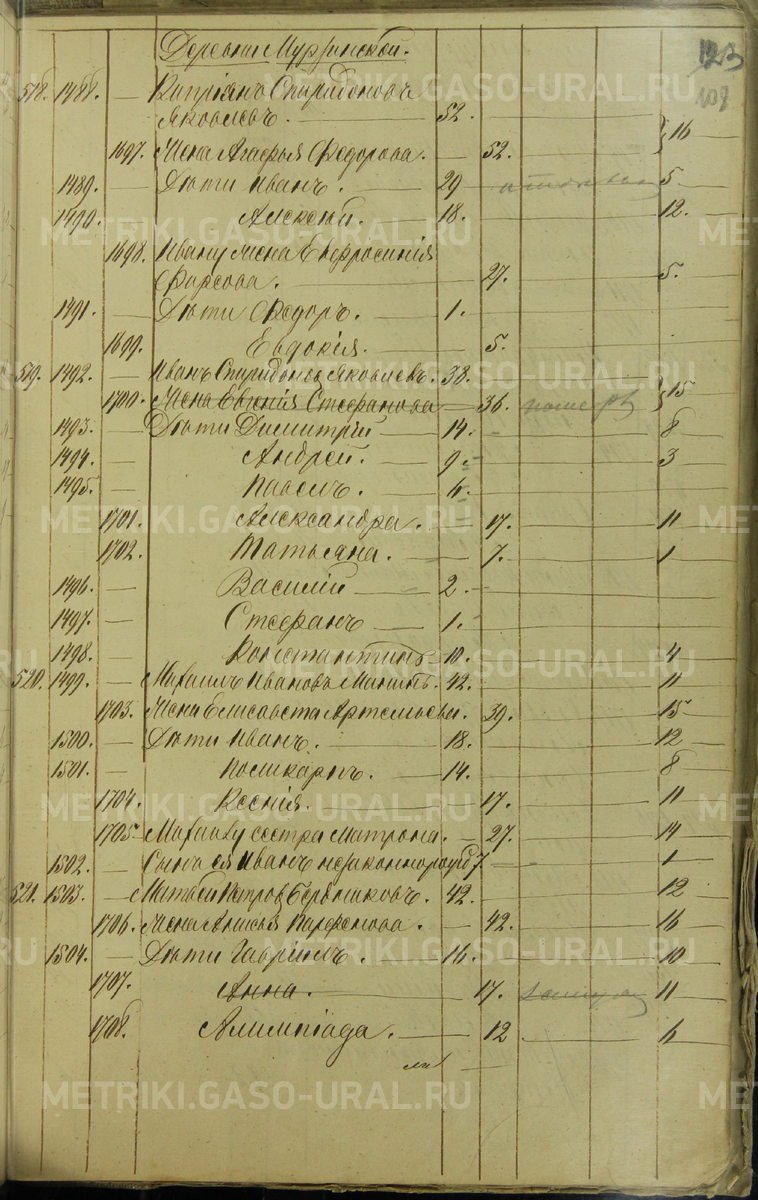 Деревни Мурзинской.
123
108
518. 1488. — Капріянъ Спиридоновъ
Яковлевъ. — 52. 16
1697. Жена Агафья Федорова. — 52.
1489. — Дѣти Иванъ. — 29 5
1490. Алексѣй. — 18. 12.
1698. Ивану жена Евфросинія
27. 5.
1491. — Дѣти Федоръ. — 1.
1699. Евдокія. — 5.
519. 1492. — Иванъ Спиридоновъ Яковлевъ. 38. 15
1700. Жена Евгенія Стефанова — 36.
1493. — Дѣти Димитрій — 14. — 8
1494. — Андрей. — 9. — 3
1495. — Павелъ. — 4.
1701. Александра. — 17. 11
1702. Татьяна. — 7. 1
1496. — Василій — 2. —
1497. — Стефанъ — 1. —
1498. Константинъ 10. 4
520. 1499. — Михаилъ Ивановъ 42. 11
1703. Жена Елисавета Артемьева. 39. 15
1500. — Дѣти Иванъ. — 18. 12
1501. — Поликарпъ. — 14. 8
1704. Ксенія. — 17. 11
1705. Михаилу сестра Матрона. — 27. 14
1502. — Сынъ ея Иванъ незаконнорожд 7. — 1
521. 1503. — Матвей Петровъ 42. 12
1706. Жена Анисья Парфенова. — 42. 16
1504. — Дѣти Гавриилъ. — 16. 10
1707. Анна. — 17. 11
1708. Алимпіада. — 12 6
METRIKI.GASO-URAL.RU